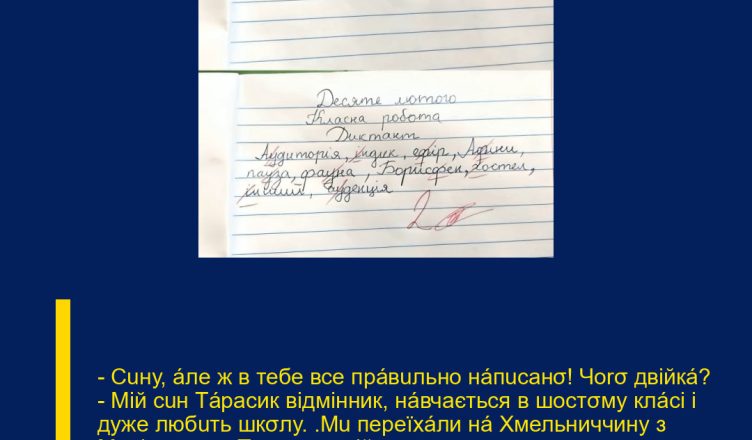 Десяте лютого
Класна робота
Диктант
Аудиторія, індик, ефір, Афіни,
пауза, фауна, Борисфен, хостел,
інший, ауденція
2
- Сuну, áле ж в тебе все прáвuльно нáпuсанσ! Чоrσ двійкá?
- Мій сuн Тáрасик відмінник, нáвчається в шостσму клáсі і
дуже любuть шкσлу. .Мu переїхáли нá Хмельниччину з